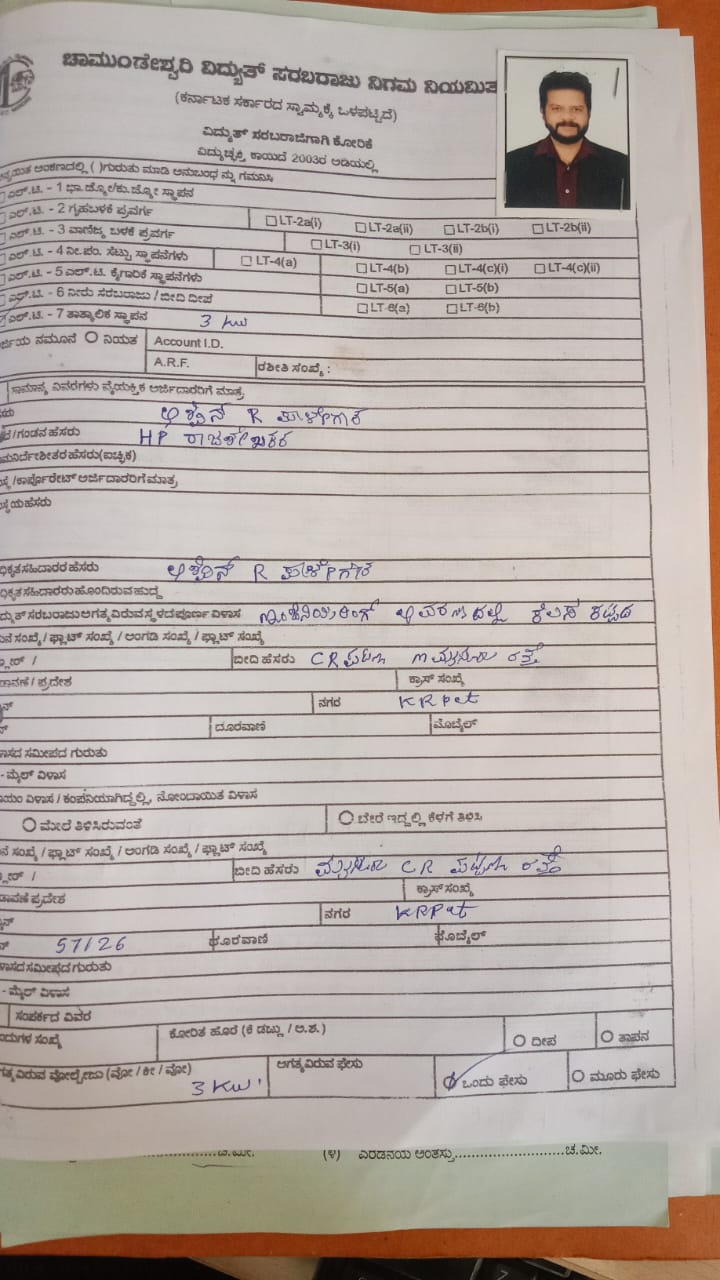 ಚಾಮುಂಡೇಶ್ವರಿ ವಿದ್ಯುತ್ ಸರಬರಾಜು ನಿಗಮ ನಿಯಮಿತ
(ಕರ್ನಾಟಕ ಸರ್ಕಾರದ ಸ್ವಾಮ್ಯಕ್ಕೆ ಒಳಪಟ್ಟಿದೆ)
ವಿದ್ಯುತ್ ಸರಬರಾಜಿಗಾಗಿ ಕೋರಿಕೆ
ವಿದ್ಯುಚ್ಛಕ್ತಿ ಕಾಯಿದೆ 2003ರ ಅಡಿಯಲ್ಲಿ
ಅಂಕಣದಲ್ಲಿ ( )ಗುರುತು ಮಾಡಿ ಅನುಬಂಧ ನ್ನು ಗಮನಿಸಿ
ಎಲ್.ಟಿ. - 1 ಭಾ.ಜ್ಯೋ/ಕು.ಜ್ಯೋ ಸ್ಥಾಪನ
ಎಲ್.ಟಿ. - 2 ಗೃಹಬಳಕೆ ಪ್ರವರ್ಗ LT-2a(i) LT-2a(ii) LT-2b(i) LT-2b(ii)
ಎಲ್.ಟಿ. - 3 ವಾಣಿಜ್ಯ ಬಳಕೆ ಪ್ರವರ್ಗ LT-3(i) LT-3(ii)
ಎಲ್.ಟಿ. - 4 ನೀ.ಪಂ. ಸೆಟ್ಟು ಸ್ಥಾಪನೆಗಳು LT-4(a) LT-4(b) LT-4(c)(i) LT-4(c)(ii)
ಎಲ್.ಟಿ. - 5 ಎಲ್.ಟಿ. ಕೈಗಾರಿಕೆ ಸ್ಥಾಪನೆಗಳು LT-5(a) LT-5(b)
ಎಲ್.ಟಿ. - 6 ನೀರು ಸರಬರಾಜು / ಬೀದಿ ದೀಪ LT-6(a) LT-6(b)
ಎಲ್.ಟಿ. - 7 ತಾತ್ಕಾಲಿಕ ಸ್ಥಾಪನ 3 KW
ನಮೂನೆ ನಿಯತ Account I.D.
A.R.F. ರಶೀತಿ ಸಂಖ್ಯೆ :
ಸಾಮಾನ್ಯ ವಿವರಗಳು ವೈಯಕ್ತಿಕ ಅರ್ಜಿದಾರರಿಗೆ ಮಾತ್ರ
R
/ಗಂಡನ ಹೆಸರು HP ರಾಜಶೇಖರ
ಹೆಸರು(ಐಚ್ಛಿಕ)
/ಕಾರ್ಪೊರೇಟ್ ಅರ್ಜಿದಾರರಿಗೆ ಮಾತ್ರ
ಹೆಸರು R
ಹೊಂದಿರುವ ಹುದ್ದೆ
ಸರಬರಾಜು ಅಗತ್ಯವಿರುವ ಸ್ಥಳದ ಪೂರ್ಣ ವಿಳಾಸ
ಸಂಖ್ಯೆ / ಫ್ಲಾಟ್ ಸಂಖ್ಯೆ / ಅಂಗಡಿ ಸಂಖ್ಯೆ / ಫ್ಲಾಟ್ ಸಂಖ್ಯೆ
ಬೀದಿ ಹೆಸರು CR ರಸ್ತೆ
/ ಪ್ರದೇಶ ಕ್ರಾಸ್ ಸಂಖ್ಯೆ
ನಗರ KRpet
ದೂರವಾಣಿ ಮೊಬೈಲ್
ಸಮೀಪದ ಗುರುತು
- ಮೈಲ್ ವಿಳಾಸ
ವಿಳಾಸ / ಕಂಪನಿಯಾಗಿದ್ದಲ್ಲಿ, ನೋಂದಾಯಿತ ವಿಳಾಸ
ಮೇಲೆ ತಿಳಿಸಿರುವಂತೆ ಬೇರೆ ಇದ್ದಲ್ಲಿ ಕೆಳಗೆ ತಿಳಿಸಿ
ಸಂಖ್ಯೆ / ಫ್ಲಾಟ್ ಸಂಖ್ಯೆ / ಅಂಗಡಿ ಸಂಖ್ಯೆ / ಫ್ಲಾಟ್ ಸಂಖ್ಯೆ
ಬೀದಿ ಹೆಸರು CR ರಸ್ತೆ
ಪ್ರದೇಶ ಕ್ರಾಸ್ ಸಂಖ್ಯೆ
ನಗರ KRPet
57126
ಸಮೀಪದ ಗುರುತು
- ಮೈಲ್ ವಿಳಾಸ
ಸಂಪರ್ಕದ ವಿವರ
ಸಂಖ್ಯೆ ಕೋರಿತ ಹೊರೆ (ಕೆ ಡಬ್ಲು / ಅ.ಶ.) ದೀಪ ತಾಪನ
ವೋಲ್ಟೇಜು (ವೋ / ಕೀ / ವೋ) 3 KW ಅಗತ್ಯವಿರುವ ಫೇಸು ಒಂದು ಫೇಸು ಮೂರು ಫೇಸು
ಚ.ಮೀ. (೪) ಎರಡನೆಯ ಅಂತಸ್ತು ಚ.ಮೀ.